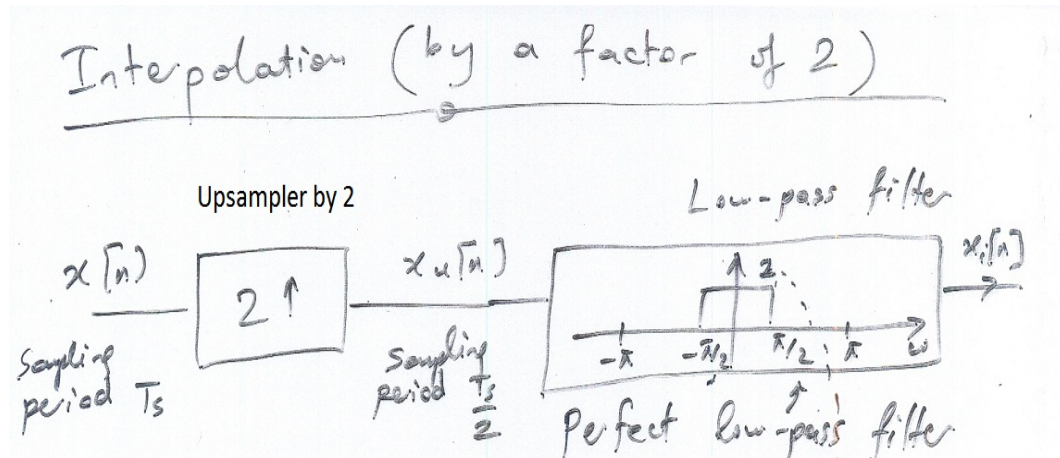 Interpolation (by a factor of 2)
Upsampler by 2
Low-pass filter
x[n) 2↑ xu[n] 2 xi[n]
-π -π/2 π/2 π ω
Sampling period Ts
Sampling period Ts/2
Perfect low-pass filter